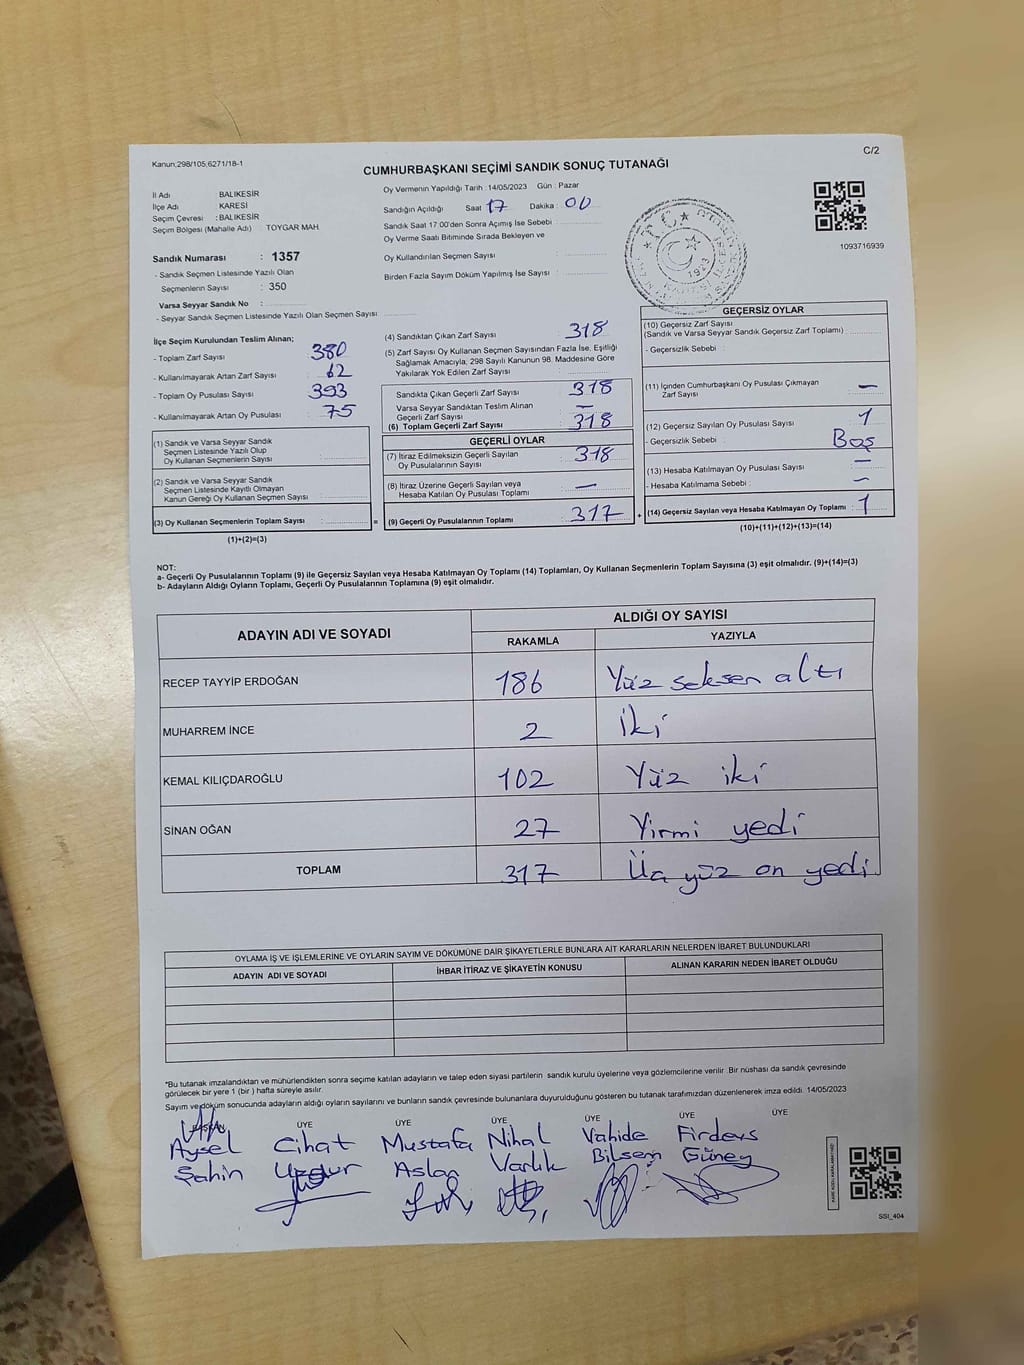 Kanun;298/105;6271/18-1
C/2
CUMHURBAŞKANI SEÇİMİ SANDIK SONUÇ TUTANAĞI
İl Adı : BALIKESİR
İlçe Adı : KARESİ
Seçim Çevresi : BALIKESİR
Seçim Bölgesi (Mahalle Adı) : TOYGAR MAH.
Sandık Numarası : 1357
- Sandık Seçmen Listesinde Yazılı Olan
Seçmenlerin Sayısı : 350
Varsa Seyyar Sandık No :
- Seyyar Sandık Seçmen Listesinde Yazılı Olan Seçmen Sayısı :
Oy Vermenin Yapıldığı Tarih : 14/05/2023 Gün : Pazar
Sandığın Açıldığı Saat 17 Dakika : 00
Sandık Saat 17:00'den Sonra Açımış İse Sebebi :
Oy Verme Saati Bitiminde Sırada Bekleyen ve
Oy Kullandırılan Seçmen Sayısı :
Birden Fazla Sayım Döküm Yapılmış İse Sayısı :
T.C.
1923
1093716939
İlçe Seçim Kurulundan Teslim Alınan;
- Toplam Zarf Sayısı : 380
- Kullanılmayarak Artan Zarf Sayısı : 62
- Toplam Oy Pusulası Sayısı : 393
- Kullanılmayarak Artan Oy Pusulası : 75
(1) Sandık ve Varsa Seyyar Sandık
Seçmen Listesinde Yazılı Olup
Oy Kullanan Seçmenlerin Sayısı :
(2) Sandık ve Varsa Seyyar Sandık
Seçmen Listesinde Kayıtlı Olmayan
Kanun Gereği Oy Kullanan Seçmen Sayısı :
(3) Oy Kullanan Seçmenlerin Toplam Sayısı : =
(1)+(2)=(3)
(4) Sandıktan Çıkan Zarf Sayısı : 318
(5) Zarf Sayısı Oy Kullanan Seçmen Sayısından Fazla İse, Eşitliği
Sağlamak Amacıyla; 298 Sayılı Kanunun 98. Maddesine Göre
Yakılarak Yok Edilen Zarf Sayısı :
Sandıkta Çıkan Geçerli Zarf Sayısı : 318
Varsa Seyyar Sandıktan Teslim Alınan
Geçerli Zarf Sayısı : —
(6) Toplam Geçerli Zarf Sayısı : 318
GEÇERLİ OYLAR
(7) İtiraz Edilmeksizin Geçerli Sayılan
Oy Pusulalarının Sayısı : 318
(8) İtiraz Üzerine Geçerli Sayılan veya
Hesaba Katılan Oy Pusulası Toplamı : —
(9) Geçerli Oy Pusulalarının Toplamı : 317 +
GEÇERSİZ OYLAR
(10) Geçersiz Zarf Sayısı
(Sandık ve Varsa Seyyar Sandık Geçersiz Zarf Toplamı) :
- Geçersizlik Sebebi :
(11) İçinden Cumhurbaşkanı Oy Pusulası Çıkmayan
Zarf Sayısı : —
(12) Geçersiz Sayılan Oy Pusulası Sayısı : 1
- Geçersizlik Sebebi : Boş
(13) Hesaba Katılmayan Oy Pusulası Sayısı : —
- Hesaba Katılmama Sebebi : —
(14) Geçersiz Sayılan veya Hesaba Katılmayan Oy Toplamı : 1
(10)+(11)+(12)+(13)=(14)
NOT:
a- Geçerli Oy Pusulalarının Toplamı (9) ile Geçersiz Sayılan veya Hesaba Katılmayan Oy Toplamı (14) Toplamları, Oy Kullanan Seçmenlerin Toplam Sayısına (3) eşit olmalıdır. (9)+(14)=(3)
b- Adayların Aldığı Oyların Toplamı, Geçerli Oy Pusulalarının Toplamına (9) eşit olmalıdır.
ADAYIN ADI VE SOYADI
ALDIĞI OY SAYISI
RAKAMLA YAZIYLA
RECEP TAYYİP ERDOĞAN 186 Yüz seksen altı
MUHARREM İNCE 2 İki
KEMAL KILIÇDAROĞLU 102 Yüz iki
SİNAN OĞAN 27 Yirmi yedi
TOPLAM 317 Üç yüz on yedi
OYLAMA İŞ VE İŞLEMLERİNE VE OYLARIN SAYIM VE DÖKÜMÜNE DAİR ŞİKAYETLERLE BUNLARA AİT KARARLARIN NELERDEN İBARET BULUNDUKLARI
ADAYIN ADI VE SOYADI İHBAR İTİRAZ VE ŞİKAYETİN KONUSU ALINAN KARARIN NEDEN İBARET OLDUĞU
*Bu tutanak imzalandıktan ve mühürlendikten sonra seçime katılan adayların ve talep eden siyasi partilerin sandık kurulu üyelerine veya gözlemcilerine verilir. Bir nüshası da sandık çevresinde
görülecek bir yere 1 (bir) hafta süreyle asılır.
Sayım ve döküm sonucunda adayların aldığı oyların sayılarını ve bunların sandık çevresinde bulunanlara duyurulduğunu gösteren bu tutanak tarafımızdan düzenlenerek imza edildi. 14/05/2023
BAŞKAN ÜYE ÜYE ÜYE ÜYE ÜYE ÜYE
Aysel Cihat Mustafa Nihal Vahide Firdevs
Şahin Aslan Varlık Bilsem Güney
SSI_404